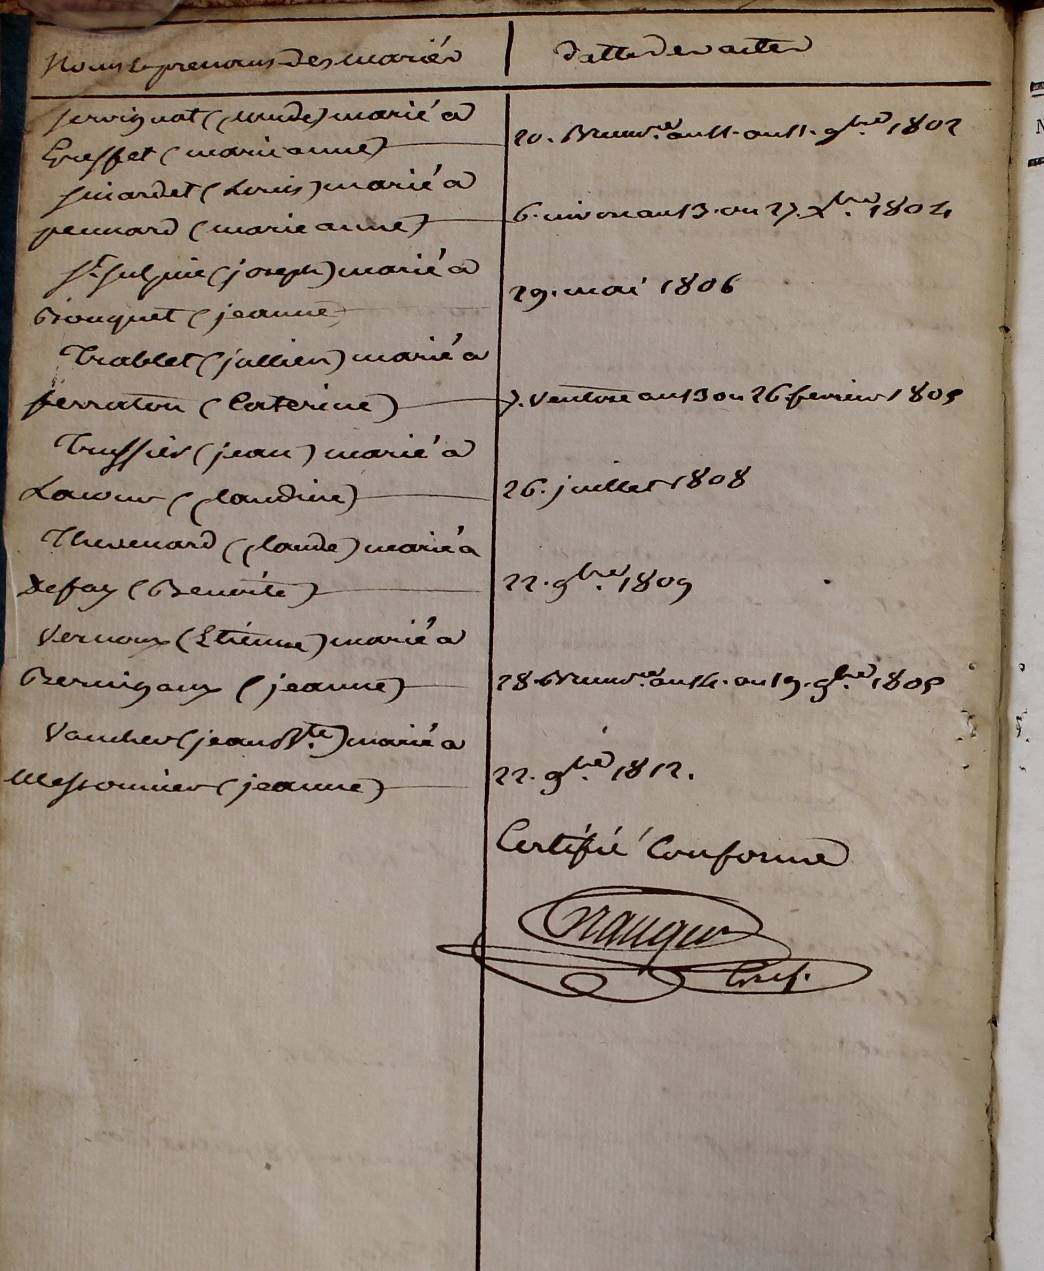 Noms et prenoms des mariés
datte des actes
Servignat (Claude) marié a
Greffet (marie anne)
20. Brum.re an 11. ou 11. 9bre 1802
Guiardet (Louis) marié a
pennard (marie anne)
6. nivose an 13. ou 27. Xbre 1804
St. Sulpice (joseph) marié a
Bouquet (jeanne
29. mai 1806
Trablet (jullien) marié a
ferraton (Caterine)
7. Ventose an 13 ou 26 fevrier 1805
Truffier (jean) marié a
Lacour (Claudine)
26. juillet 1808
Thevenard (Claude) marié a
Defay (Benoite)
22. 9bre 1809
Vernoux (Etienne) marié a
Bernigaux (jeanne)
28 Brum.re an 14. ou 19. 9bre 1805
Vaucher (jean Bte) marié a
Messonnier (jeanne)
22. 9bre 1812.
Certifié Conforme
Gref.